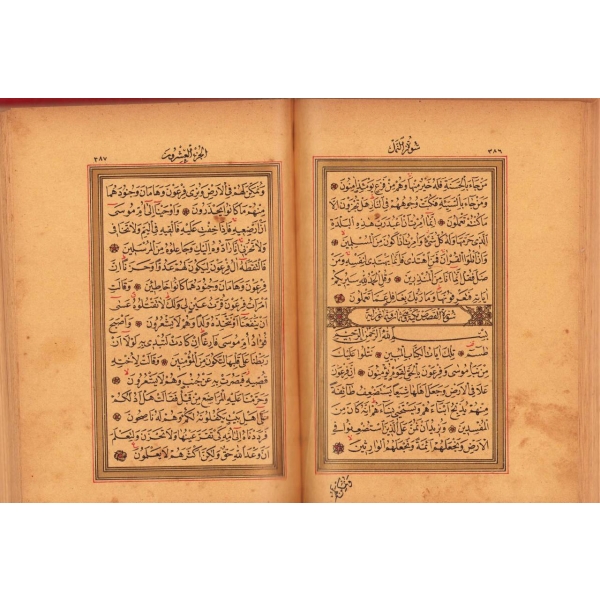 سورة النمل
٣٨٦
من جاء بالحسنة فله خير منها وهم من فزع يومئذ آمنون
ومن جاء بالسيئة فكبت وجوههم في النار هل تجزون الا
ما كنتم تعملون انما امرت ان اعبد رب هذه البلدة
الذي حرمها وله كل شيء وامرت ان اكون من المسلمين
وان اتلوا القرآن فمن اهتدى فانما يهتدي لنفسه ومن
ضل فقل انما انا من المنذرين وقل الحمد لله سيريكم
آياته فتعرفونها وما ربك بغافل عما تعملون
سورة القصص
بسم الله الرحمن الرحيم
طسم تلك آيات الكتاب المبين نتلوا عليك
من نبأ موسى وفرعون بالحق لقوم يؤمنون ان فرعون
علا في الارض وجعل اهلها شيعا يستضعف طائفة
منهم يذبح ابناءهم ويستحيي نساءهم انه كان من
المفسدين ونريد ان نمن على الذين استضعفوا في
الارض ونجعلهم ائمة ونجعلهم الوارثين
ونمكن لهم
الجزء العشرون
٣٨٧
ونمكن لهم في الارض ونري فرعون وهامان وجنودهما
منهم ما كانوا يحذرون واوحينا الى ام موسى
ان ارضعيه فاذا خفت عليه فالقيه في اليم ولا تخافي
ولا تحزني انا رادوه اليك وجاعلوه من المرسلين
فالتقطه آل فرعون ليكون لهم عدوا وحزنا ان
فرعون وهامان وجنودهما كانوا خاطئين وقالت
امرأت فرعون قرت عين لي ولك لا تقتلوه عسى
ان ينفعنا او نتخذه ولدا وهم لا يشعرون واصبح
فؤاد ام موسى فارغا ان كادت لتبدي به لولا ان
ربطنا على قلبها لتكون من المؤمنين وقالت لاخته
قصيه فبصرت به عن جنب وهم لا يشعرون
وحرمنا عليه المراضع من قبل فقالت هل ادلكم
على اهل بيت يكفلونه لكم وهم له ناصحون
فرددناه الى امه كي تقر عينها ولا تحزن ولتعلم
ان وعد الله حق ولكن اكثرهم لا يعلمون